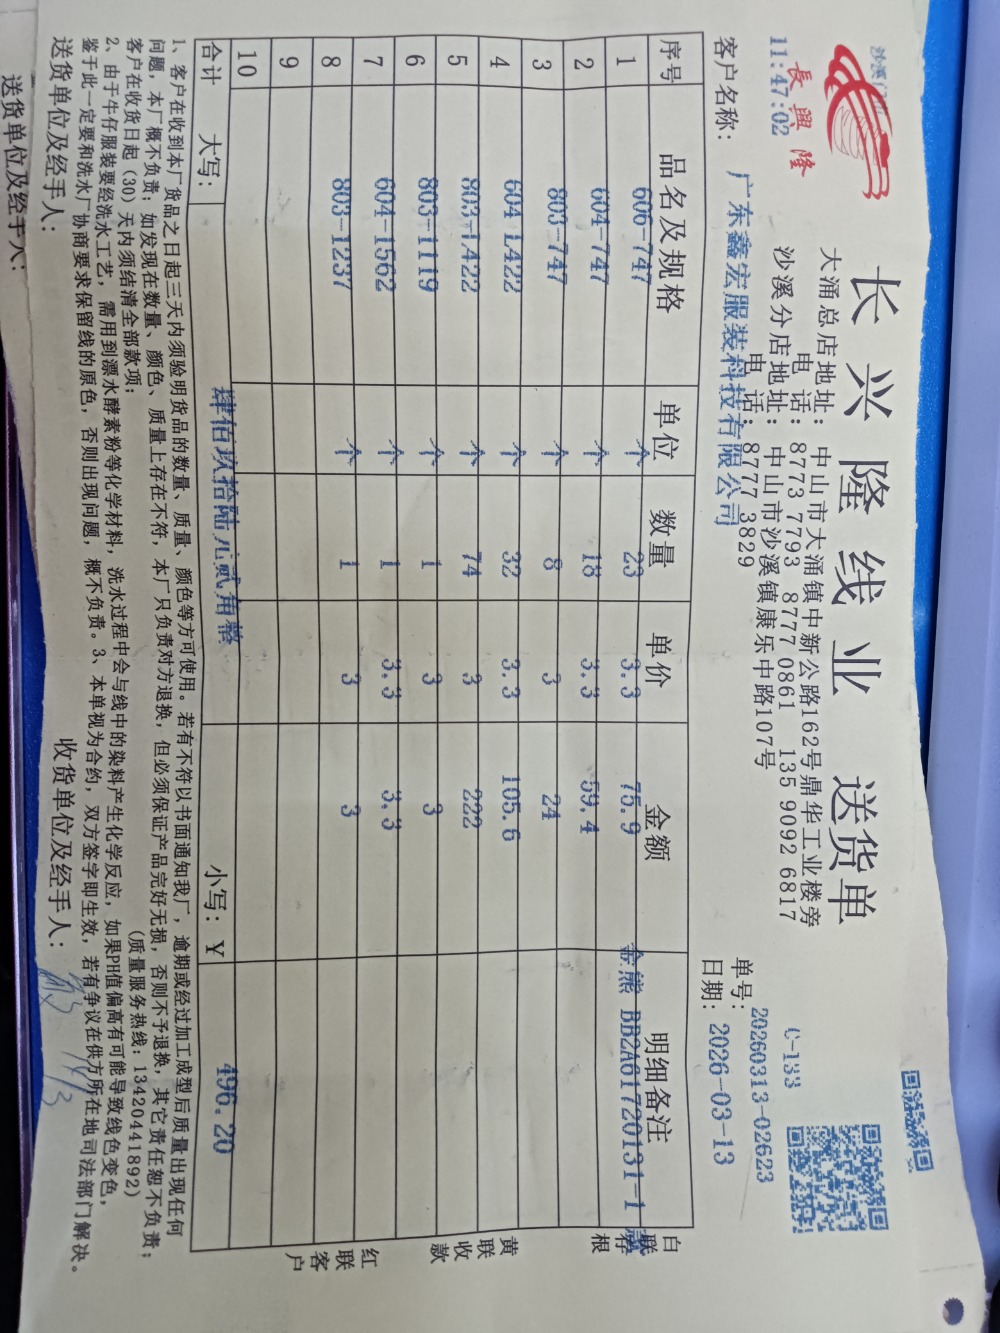 長興隆
长兴隆线业 送货单
沙溪
11:47:02
大涌总店地址：中山市大涌镇中新公路162号鼎华工业楼旁
电 话：8773 7793 8777 0861 135 9092 6817
沙溪分店地址：中山市沙溪镇康乐中路107号
电 话：8777 3829
C-133
单号：20260313-02623
客户名称：广东鑫宏服装科技有限公司
日期：2026-03-13
序号 品名及规格 单位 数量 单价 金额 明细备注
1 606-747 个 23 3.3 75.9 金熊 BB2A61720131-1
2 604-747 个 18 3.3 59.4
3 803-747 个 8 3 24
4 604-L422 个 32 3.3 105.6
5 803-L422 个 74 3 222
6 803-1119 个 1 3 3
7 604-1562 个 1 3.3 3.3
8 803-1237 个 1 3 3
9
10
合计 大写：肆佰玖拾陆元贰角整 小写：￥ 496.20
白联存根
黄联收款
红联客户
1、客户在收到本厂货品之日起三天内须验明货品的数量、质量、颜色等方可使用。若有不符以书面通知我厂，逾期或经过加工成型后质量出现任何
问题，本厂概不负责；如发现在数量、颜色、质量上存在不符，本厂只负责对方退换，但必须保证产品完好无损，否则不予退换，其它责任恕不负责；
客户在收货日起（30）天内须结清全部款项； （质量服务热线：13420441892）
2、由于牛仔服装要经洗水工艺，需用到漂水酵素粉等化学材料，洗水过程中会与线中的染料产生化学反应，如果PH值偏高有可能导致线色变色，
鉴于此一定要和洗水厂协商要求保留线的原色，否则出现问题，概不负责。3、本单视为合约，双方签字即生效，若有争议在供方所在地司法部门解决。
送货单位及经手人： 收货单位及经手人：
送货单位及经手人：